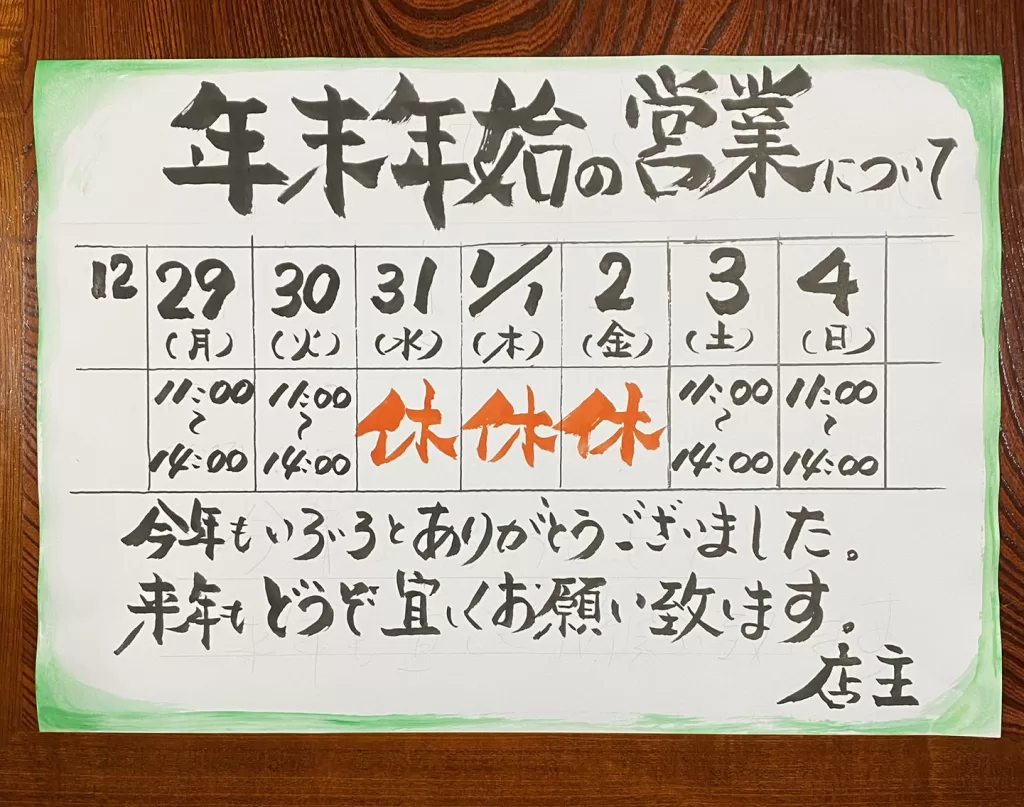 年末年始の営業について
12 29 30 31 1/1 2 3 4
(月) (火) (水) (木) (金) (土) (日)
11:00 11:00 休 休 休 11:00 11:00
〜 〜 〜 〜
14:00 14:00 14:00 14:00
今年もいろいろとありがとうございました。
来年もどうぞ宜しくお願い致します。
店主